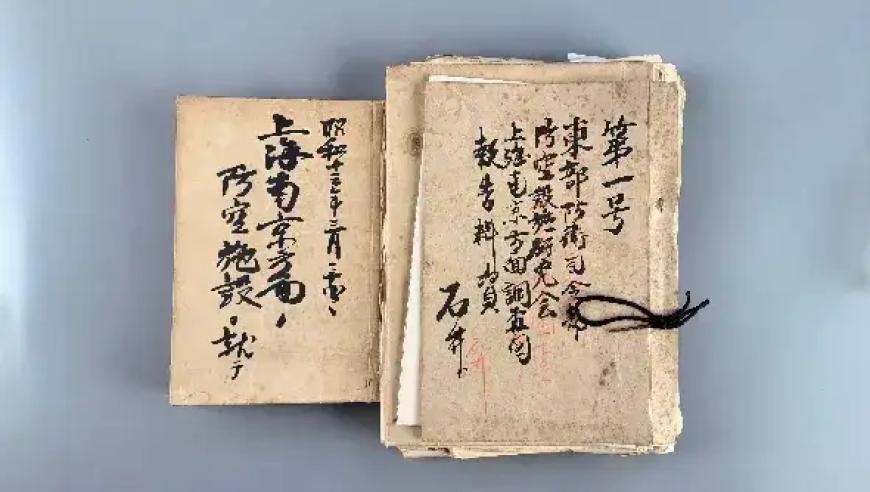 第一号
東部防衛司令部
防空設施研究会
上海南京方面調査団
報告
石井
昭和十三年三月
上海南京方面ノ
防空施設ニ就テ